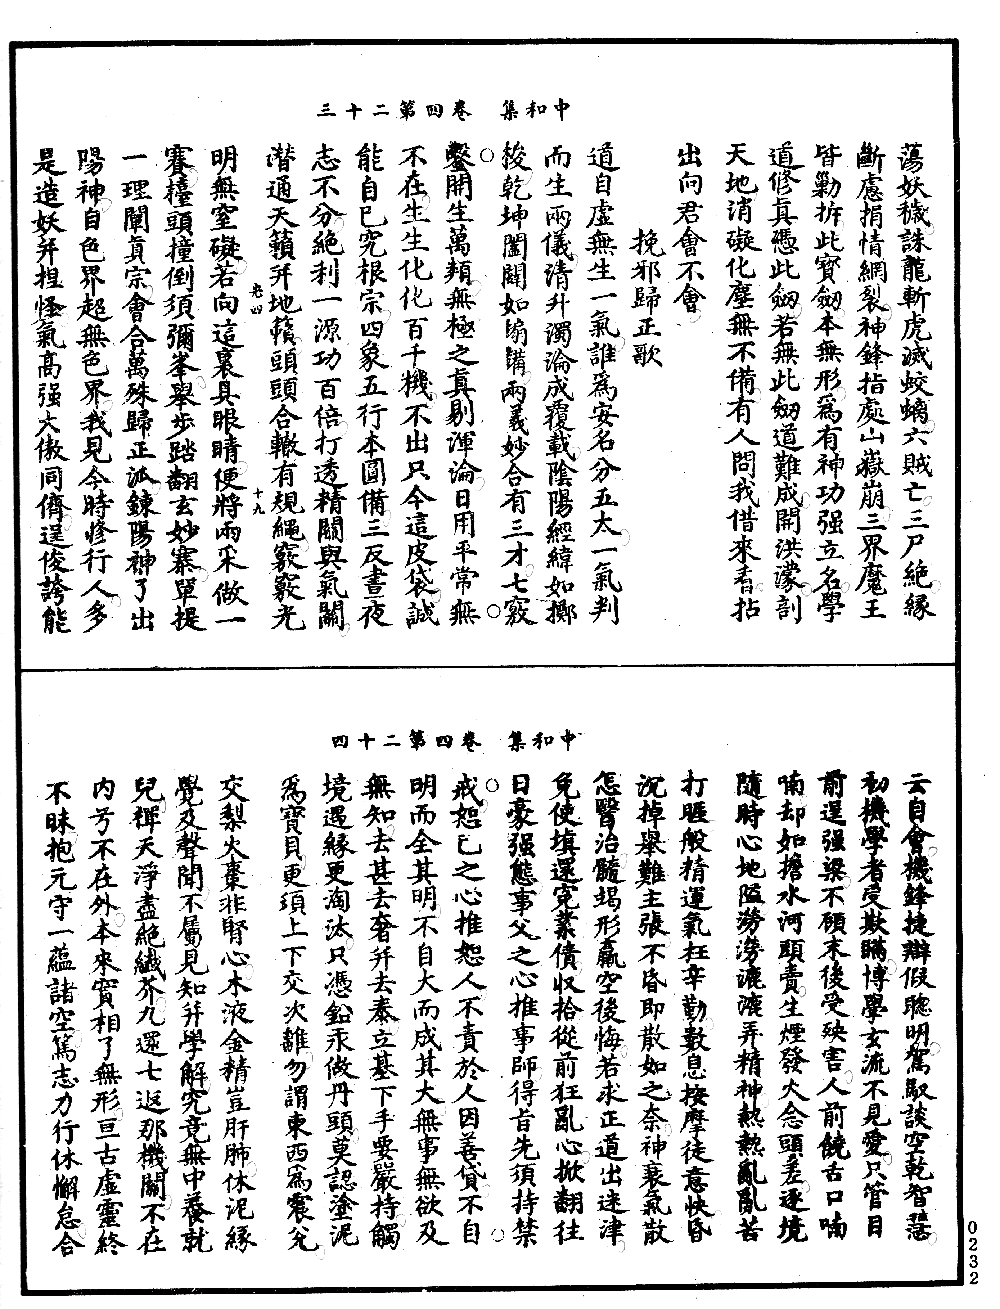 中和集　卷四第二十三
蕩妖穢誅龍斬虎滅蛟螭六賊亡三尸絕緣
斷慮捐情網裂神鋒指處山嶽崩三界魔王
皆勦拆此寶劒本無形爲有神功强立名學
道修真憑此劒若無此劒道難成開洪濛剖
天地消礙化塵無不備有人問我借來看拈
出向君會不會
挽邪歸正歌
道自虛無生一氣誰爲安名分五太一氣判
而生兩儀清升濁淪成覆載陰陽經緯如擲
梭乾坤闔闢如搧鞴兩義妙合有三才七竅
鑿開生萬類無極之真剔渾淪日用平常無
不在生生化化百千機不出只今這皮袋誠
能自已究根宗四象五行本圓備三反晝夜
志不分絕利一源功百倍打透精關與氣關
潛通天籟并地籟頭頭合轍有規繩竅竅光
老四　十九
明無窒礙若向這裏具眼睛便將兩采做一
賽擡頭撞倒須彌峯舉步踏翻玄妙寨單提
一理闡真宗會合萬殊歸正派鍊陽神了出
陽神自色界超無色界我見今時修行人多
是造妖并揑怪氣高强大傲同儕逞俊誇能
中和集　卷四第二十四
云自會機鋒捷辯假聰明駕馭談空乾智慧
初機學者受欺瞞博學玄流不見愛只管目
前逞强梁不顧末後受殃害人前饒舌口喃
喃却如擔水河頭賣生煙發火念頭差逐境
隨時心地隘勞勞漉漉弄精神熱熱亂亂苦
打睚般精運氣枉辛勤數息按摩徒意快昏
沉掉舉難主張不昏即散如之奈神衰氣散
怎醫治髓竭形羸空後悔若求正道出迷津
免使填還寃業債收拾從前狂亂心掀翻往
日豪强態事父之心推事師得旨先須持禁
戒恕己之心推恕人不責於人因善貸不自
明而全其明不自大而成其大無事無欲及
無知去甚去奢并去泰立基下手要嚴持觸
境遇緣更淘汰只憑鉛汞做丹頭莫認塗泥
爲寶貝更須上下交次離勿謂東西爲震兌
交梨火棗非腎心木液金精豈肝肺休泥緣
覺及聲聞不屬見知并學解究竟無中養就
兒禪天淨盡絕纖芥九還七返那機關不在
內兮不在外本來實相了無形亘古虛靈終
不昧抱元守一蘊諸空篤志力行休懈怠合
0232